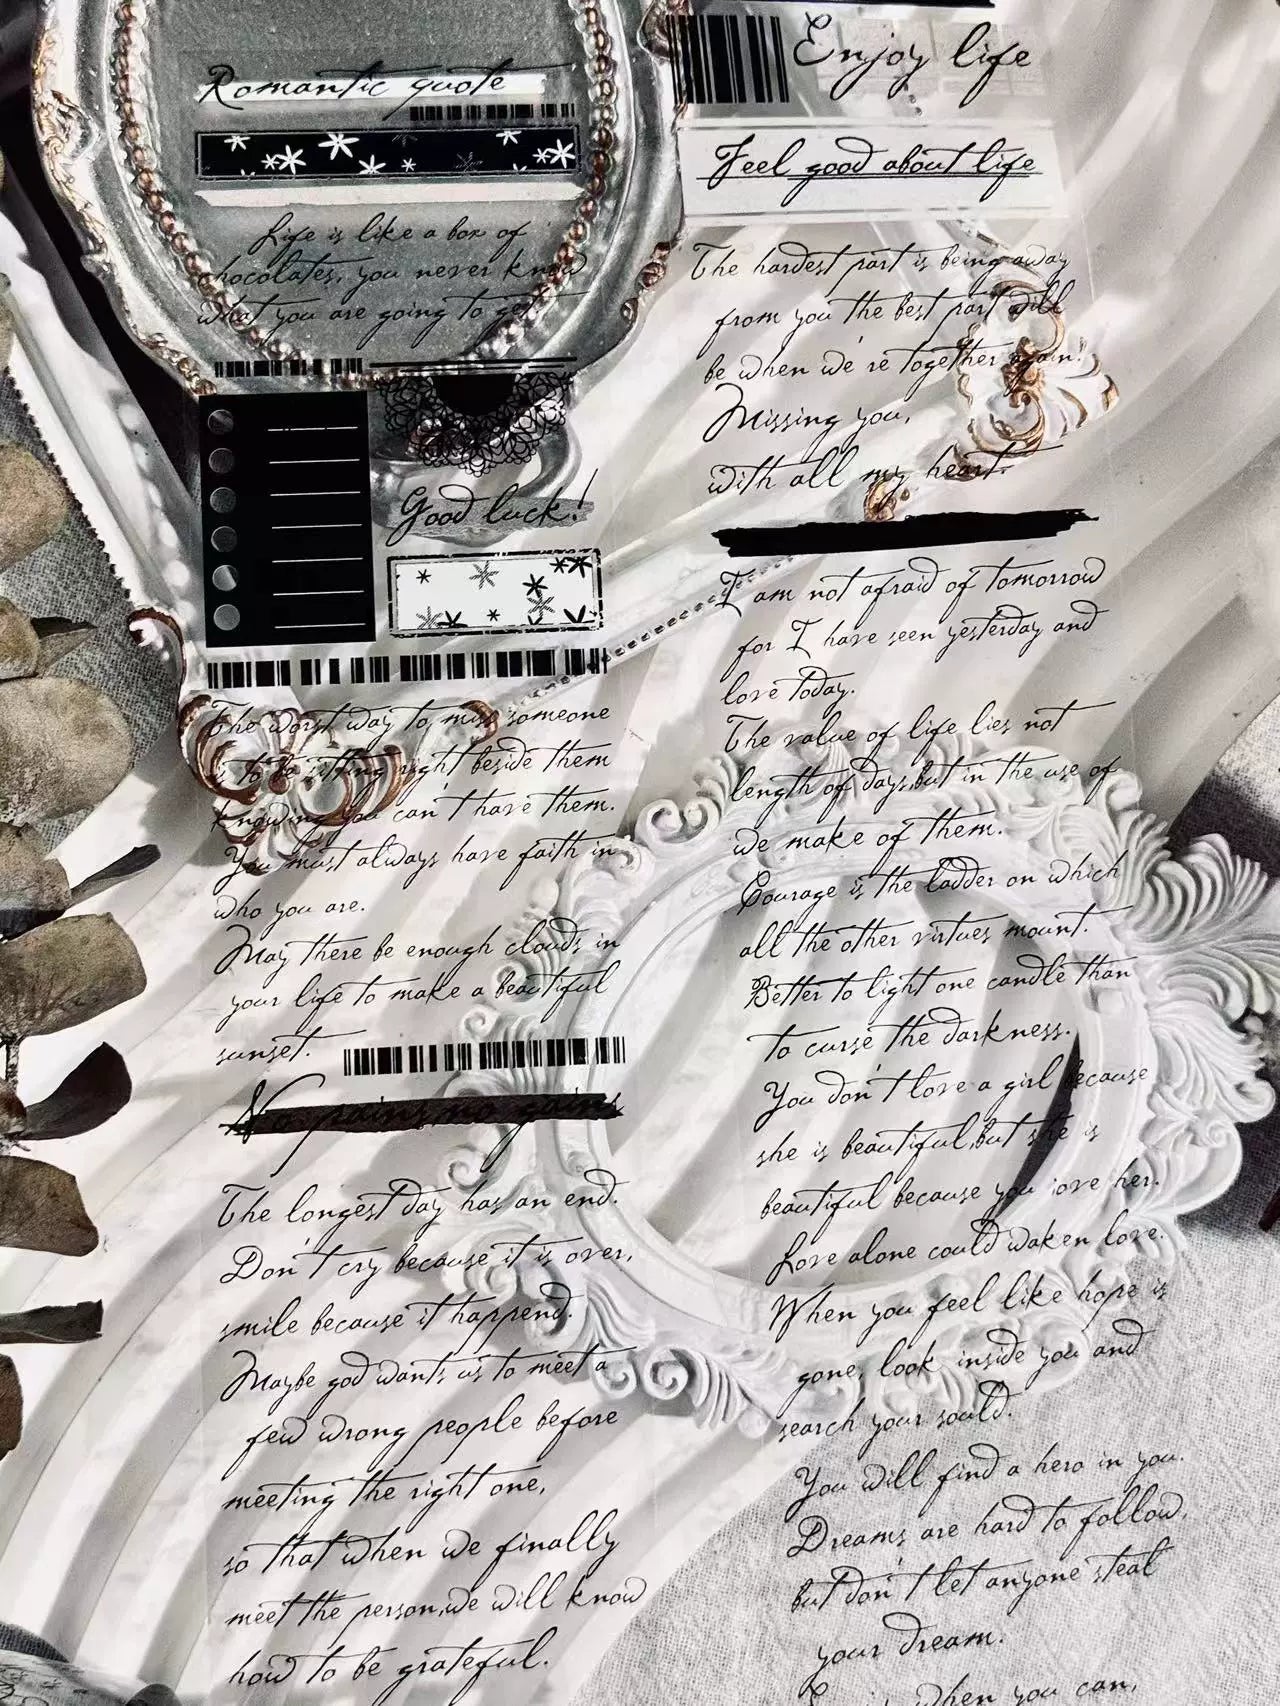 Romantic quote
Life is like a box of
chocolates, you never know
what you are going to get.
Good luck!
The worst way to miss someone
is to be sitting right beside them
knowing you can't have them.
You must always have faith in
who you are.
May there be enough clouds in
your life to make a beautiful
sunset.
No pains,no gains
The longest day has an end.
Don't cry because it is over,
smile because it happend.
Maybe god wants us to meet a
few wrong people before
meeting the right one,
so that when we finally
meet the person,we will know
how to be grateful.
Enjoy life
Feel good about life
The hardest part is being away
from you the best part will
be when we're together again!
Missing you,
with all my heart.
I am not afraid of tomorrow
for I have seen yesterday and
love today.
The value of life lies not
length of days,but in the use of
we make of them.
Courage is the ladder on which
all the other virtues mount.
Better to light one candle than
to curse the darkness.
You don't love a girl because
she is beautiful,but she is
beautiful because you love her.
Love alone could waken love.
When you feel like hope is
gone, look inside you and
search your sould.
You will find a hero in you.
Dreams are hard to follow,
but don't let anyone steal
your dream.
when you can,